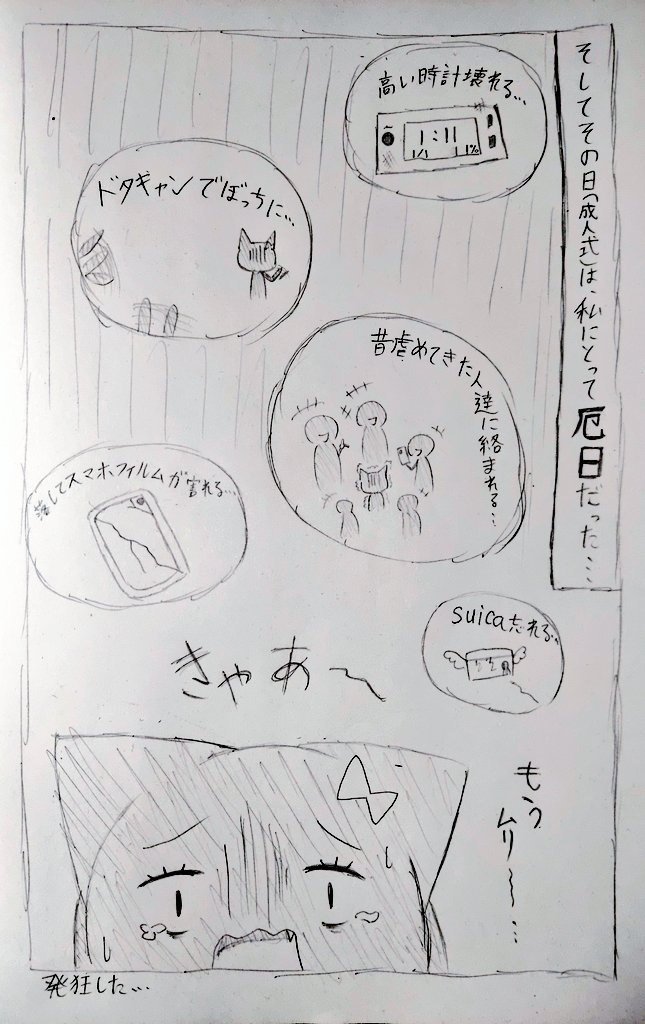 そしてその日「成人式」は、私にとって厄日だった…
高い時計壊れる…
1:11
1/1 11%
ドタキャンでぼっちに…
昔虐めてきた人達に絡まれる…
落してスマホフィルムが割れる…
suica忘れる…
きゃあ〜
もう
ムリ〜…
発狂した…